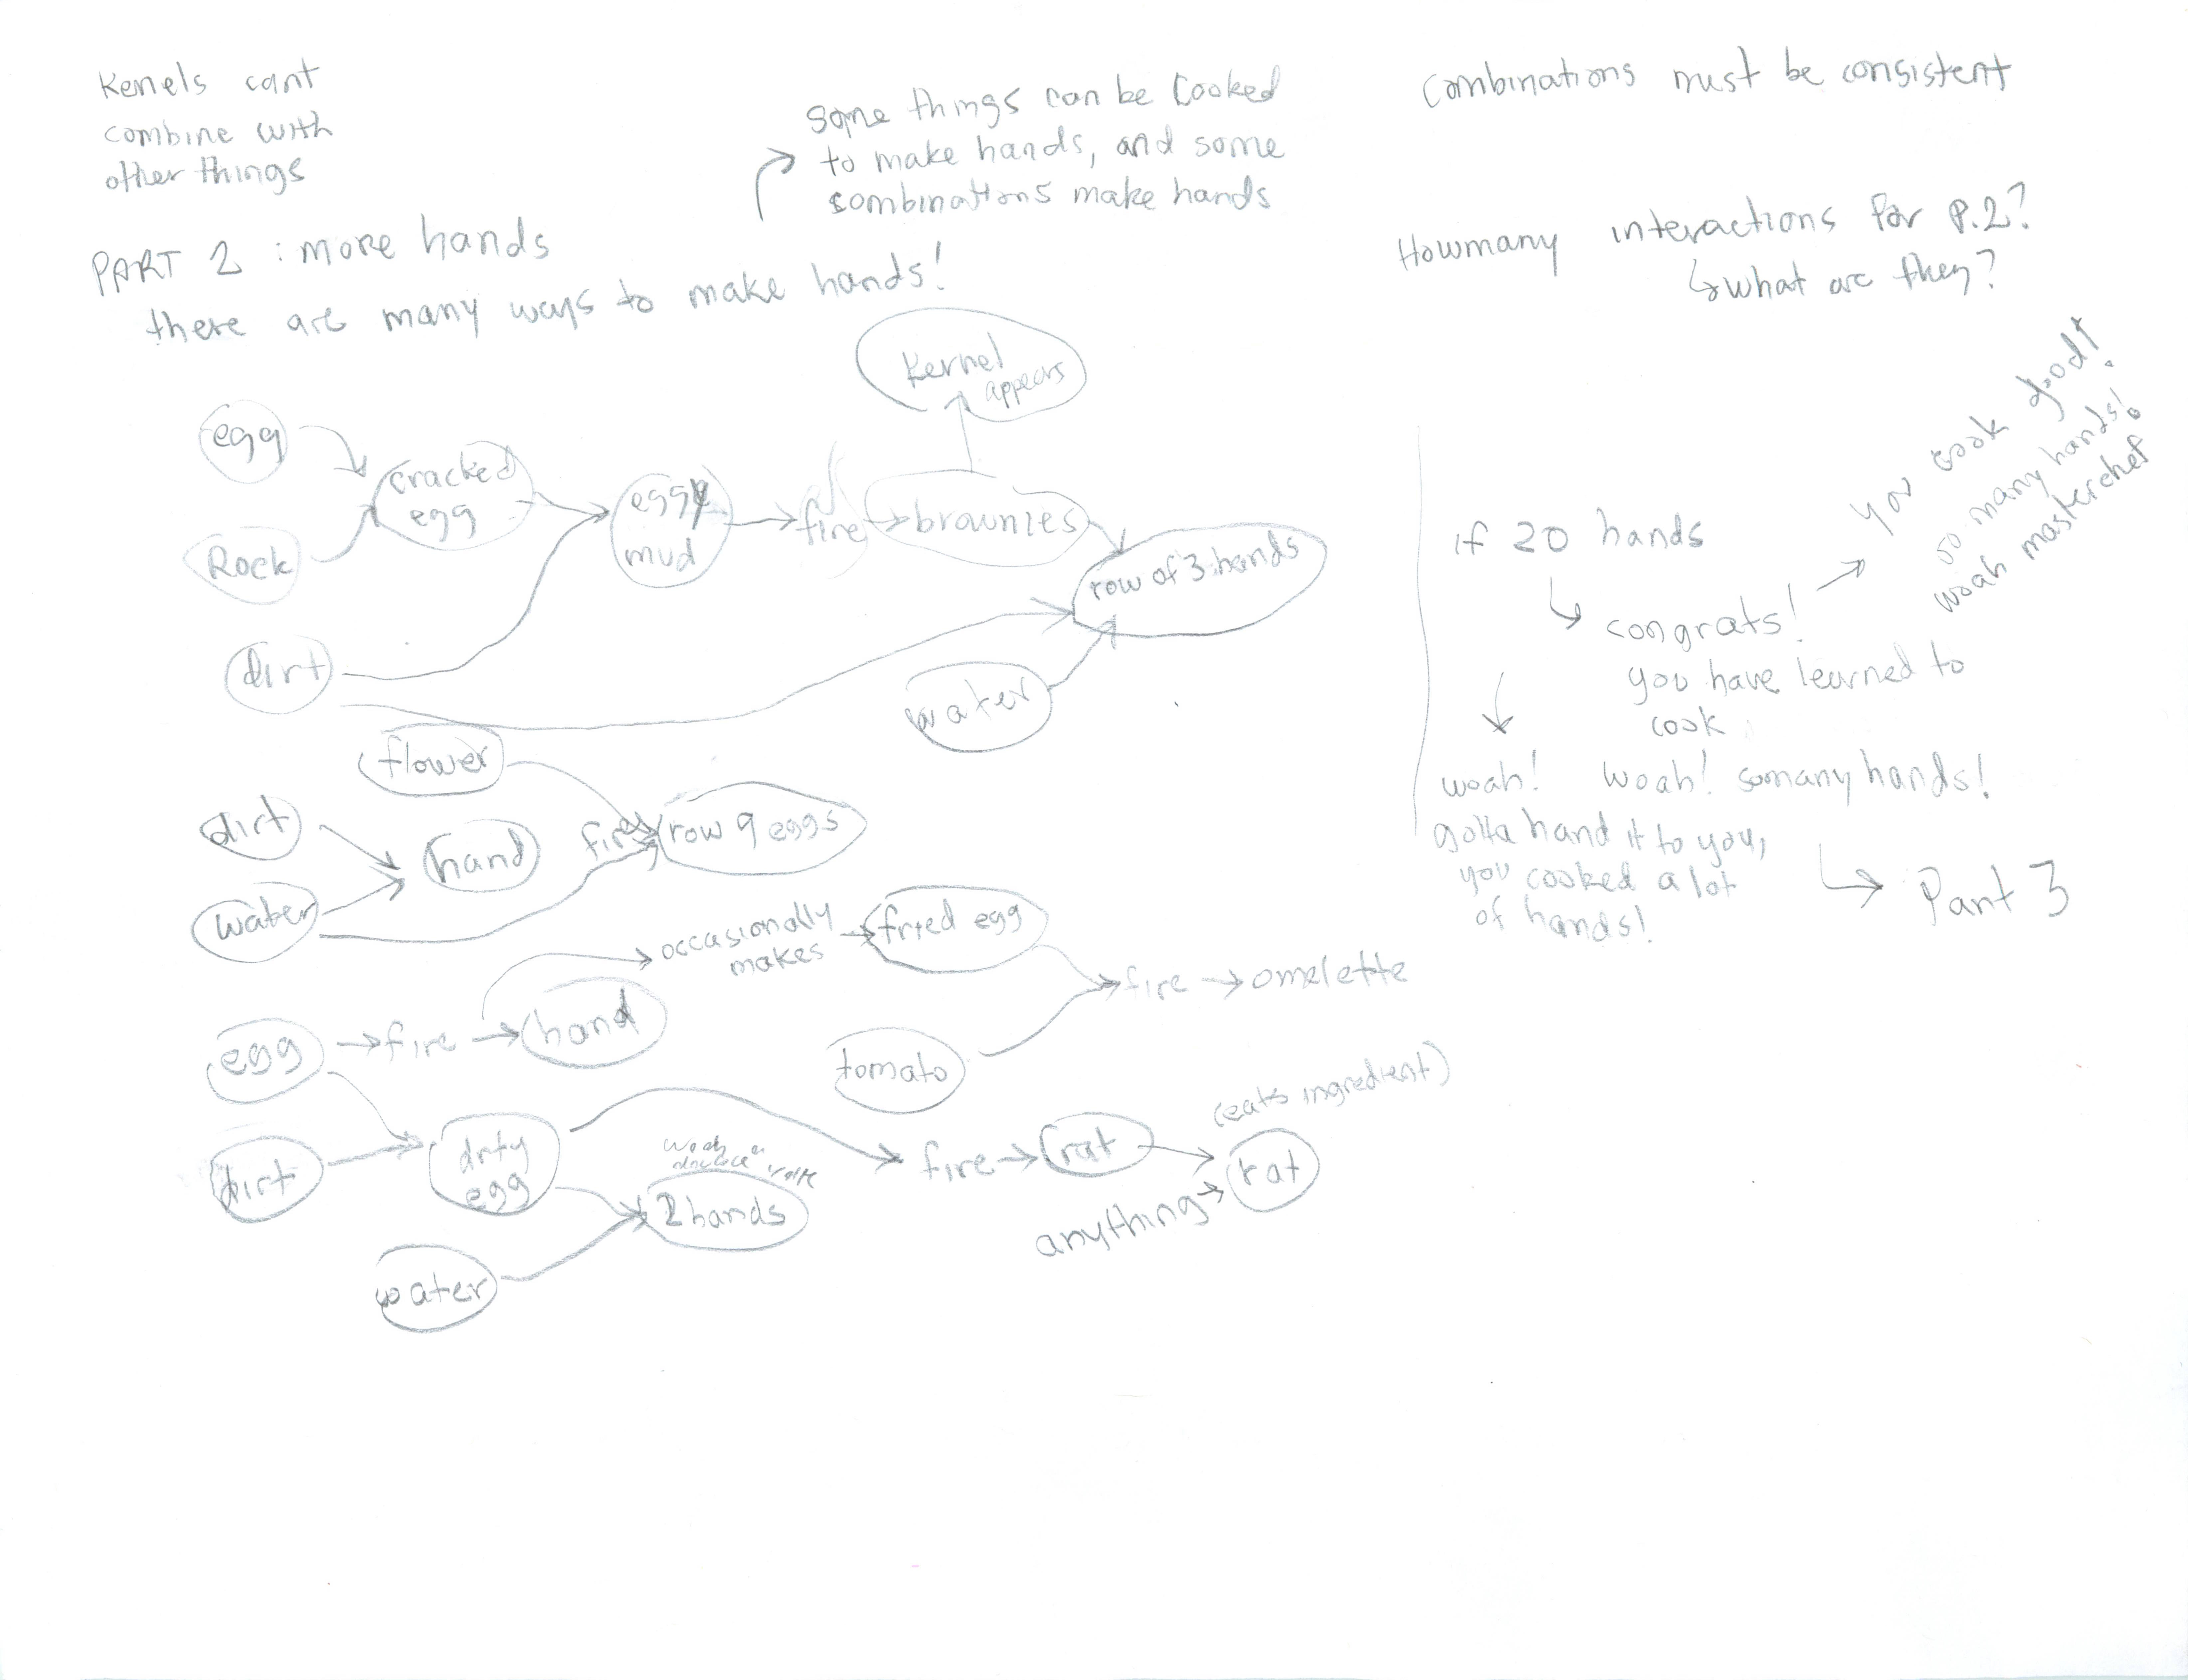 Kenels cant
combine with
other things
some things can be cooked
to make hands, and some
combinations make hands
combinations must be consistent
PART 2 : more hands
there are many ways to make hands!
Howmany interactions for p.2?
what are they?
Kernel
appears
egg
Rock
cracked
egg
eggy
mud
fire
brownies
row of 3 hands
dirt
water
flower
dirt
water
hand
fire
row 9 eggs
egg
fire
hand
occasionally
makes
fried egg
tomato
fire
omelette
dirt
drty
egg
water
woah
2 hands
fire
rat
(eats ingredient)
rat
anything
if 20 hands
congrats!
you have learned to
cook
you cook good!
so many hands!
woah masterchef
woah! woah! somany hands!
gotta hand it to you,
you cooked a lot
of hands!
Part 3